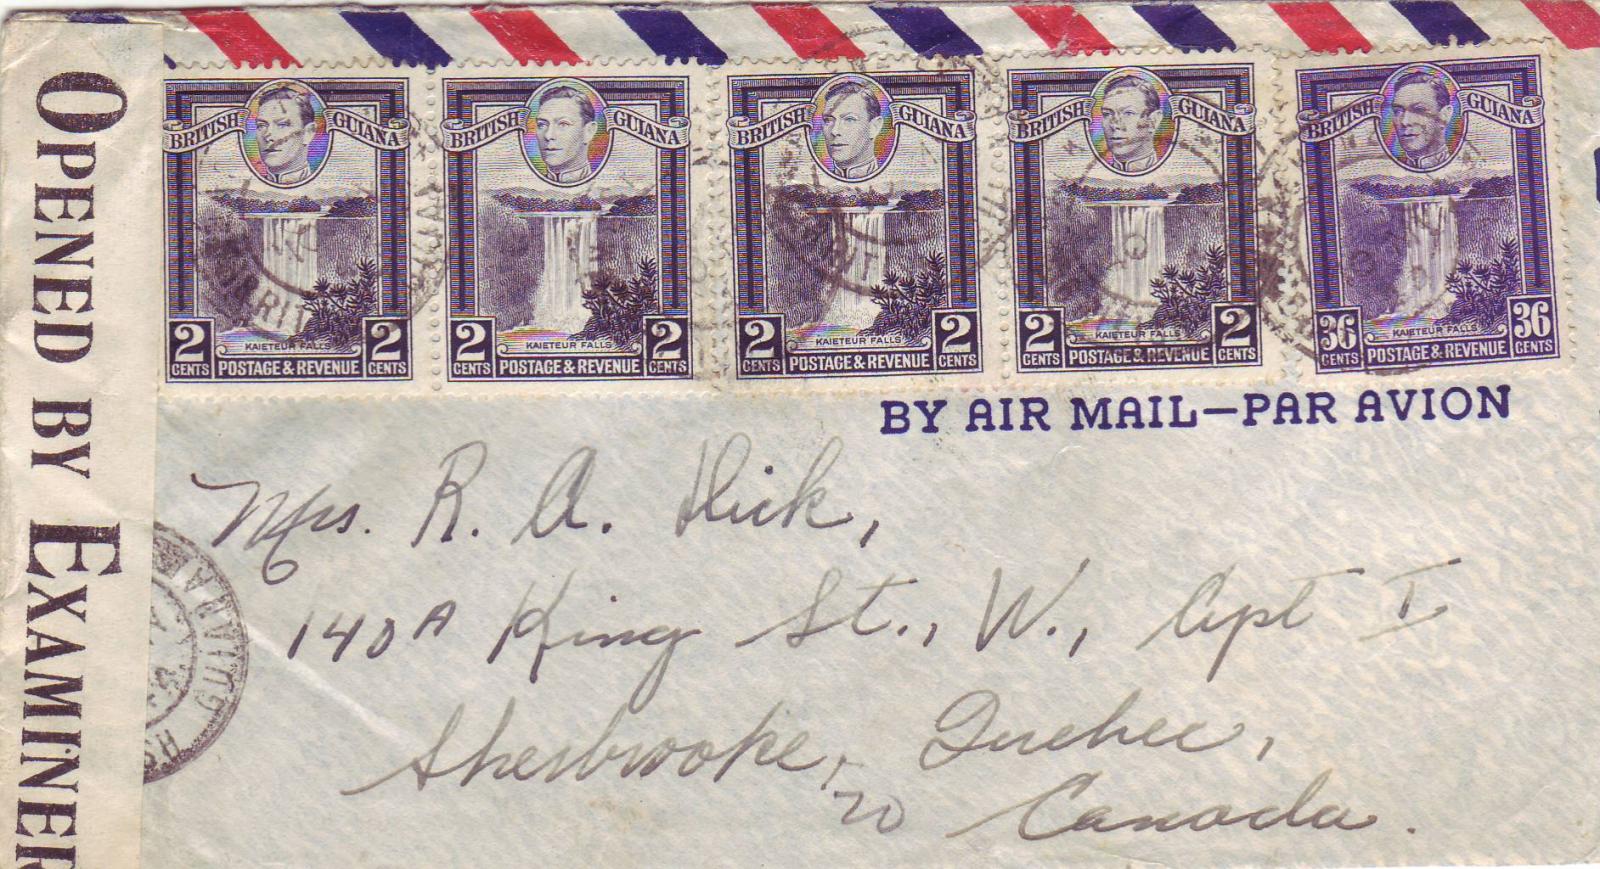 OPENED BY EXAMINER
BRITISH GUIANA
KAIETEUR FALLS
2 CENTS POSTAGE & REVENUE 2 CENTS
BRITISH GUIANA
KAIETEUR FALLS
2 CENTS POSTAGE & REVENUE 2 CENTS
BRITISH GUIANA
KAIETEUR FALLS
2 CENTS POSTAGE & REVENUE 2 CENTS
BRITISH GUIANA
KAIETEUR FALLS
2 CENTS POSTAGE & REVENUE 2 CENTS
BRITISH GUIANA
KAIETEUR FALLS
36 CENTS POSTAGE & REVENUE 36 CENTS
BY AIR MAIL—PAR AVION
Mrs. R. A. Dick,
140A King St., W., Apt I
Sherbrooke, Quebec,
Canada.